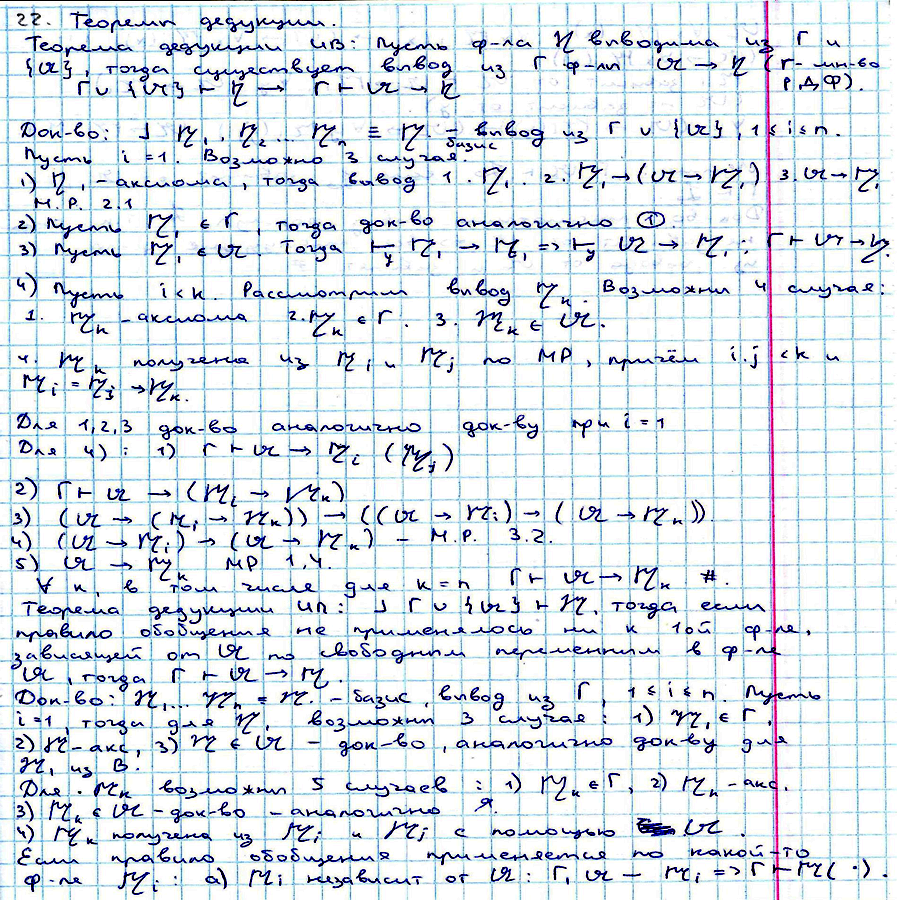 22. Теоремы дедукции.
Теорема дедукции ИВ: Пусть ф-ла η выводима из Г и
{𝔄}, тогда существует вывод из Г ф-лы 𝔄 → η (Г - мн-во
Г ∪ {𝔄} ⊢ η → Г ⊢ 𝔄 → η Р.Д.Ф).
Док-во: ] η₁, η₂ ... ηₙ ≡ η. - вывод из Г ∪ {𝔄}, 1 ≤ i ≤ n.
базис
Пусть i = 1. Возможно 3 случая.
1) η₁ - аксиома, тогда вывод 1. η₁. 2. η₁ → (𝔄 → η₁) 3. 𝔄 → η₁
М.Р. 2.1
2) Пусть η₁ ∈ Г, тогда док-во аналогично ①.
3) Пусть η₁ ∈ 𝔄. Тогда ⊢ η₁ → η₁ => ⊢ 𝔄 → η₁ : Г ⊢ 𝔄 → η.
у у
4) Пусть i < k. Рассмотрим вывод ηₖ. Возможны 4 случая:
1. ηₖ - аксиома 2. ηₖ ∈ Г. 3. ηₖ ∈ 𝔄.
4. ηₖ получена из ηᵢ и ηⱼ по МР, причём i, j < k и
ηᵢ = ηⱼ → ηₖ.
Для 1, 2, 3 док-во аналогично док-ву при i = 1
Для 4) : 1) Г ⊢ 𝔄 → ηᵢ (ηⱼ)
2) Г ⊢ 𝔄 → (ηᵢ → ηₖ)
3) (𝔄 → (ηᵢ → ηₖ)) → ((𝔄 → ηᵢ) → (𝔄 → ηₖ)).
4) (𝔄 → ηᵢ) → (𝔄 → ηₖ) - М.Р. 3.2.
5) 𝔄 → ηₖ МР 1,4.
∀ k, в том числе для k = n Г ⊢ 𝔄 → ηₖ #.
Теорема дедукции ИП: ] Г ∪ {𝔄} ⊢ η, тогда если
правило обобщения не применялось ни к 1ой ф-ле,
зависящей от 𝔄 по свободным переменным в ф-ле
𝔄, тогда Г ⊢ 𝔄 → η.
Док-во: η₁ ... ηₙ = η. - базис, вывод из Г, 1 ≤ i ≤ n. Пусть
i = 1, тогда для η₁ возможны 3 случая: 1) η₁ ∈ Г,
2) η - акс, 3) η ∈ 𝔄 - док-во, аналогично док-ву для
η₁ из В.
Для ηₖ возможны 5 случаев : 1) ηₖ ∈ Г, 2) ηₖ - акс.
3) ηₖ ∈ 𝔄 - док-во - аналогично
4) ηₖ получена из ηᵢ и ηⱼ с помощью 𝔄.
Если правило обобщения применяется по какой-то
ф-ле ηᵢ : а) ηᵢ независит от 𝔄 : Г, 𝔄 - ηᵢ => Г ⊢ η( · ).